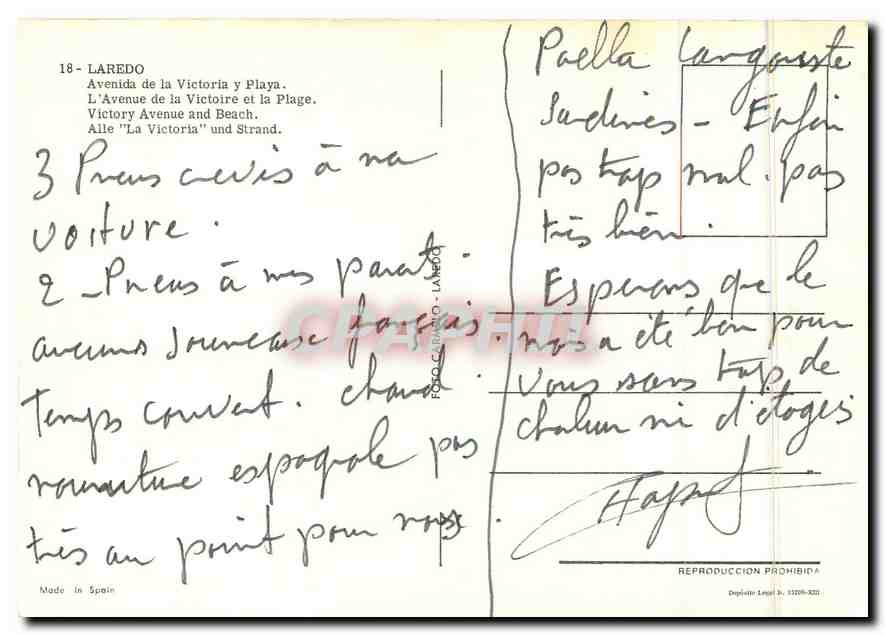 18 - LAREDO
Avenida de la Victoria y Playa.
L'Avenue de la Victoire et la Plage.
Victory Avenue and Beach.
Alle "La Victoria" und Strand.
3 Pneus crevés à ma
voiture.
2 - Pneus à mes parents.
aucuns journeaux français.
Temps couvert. chaud.
nourriture espagnole pas
très au point pour nous.
Made in Spain
FOTO-CARMELO - LAREDO
CPAPHIL
Paella Langouste
Sardines - Enfin
pas trop mal. pas
très bien.
Esperons que le
mois a été bon pour
vous sans trop de
chaleur ni d'étages
REPRODUCCION PROHIBIDA
Depósito Legal B.